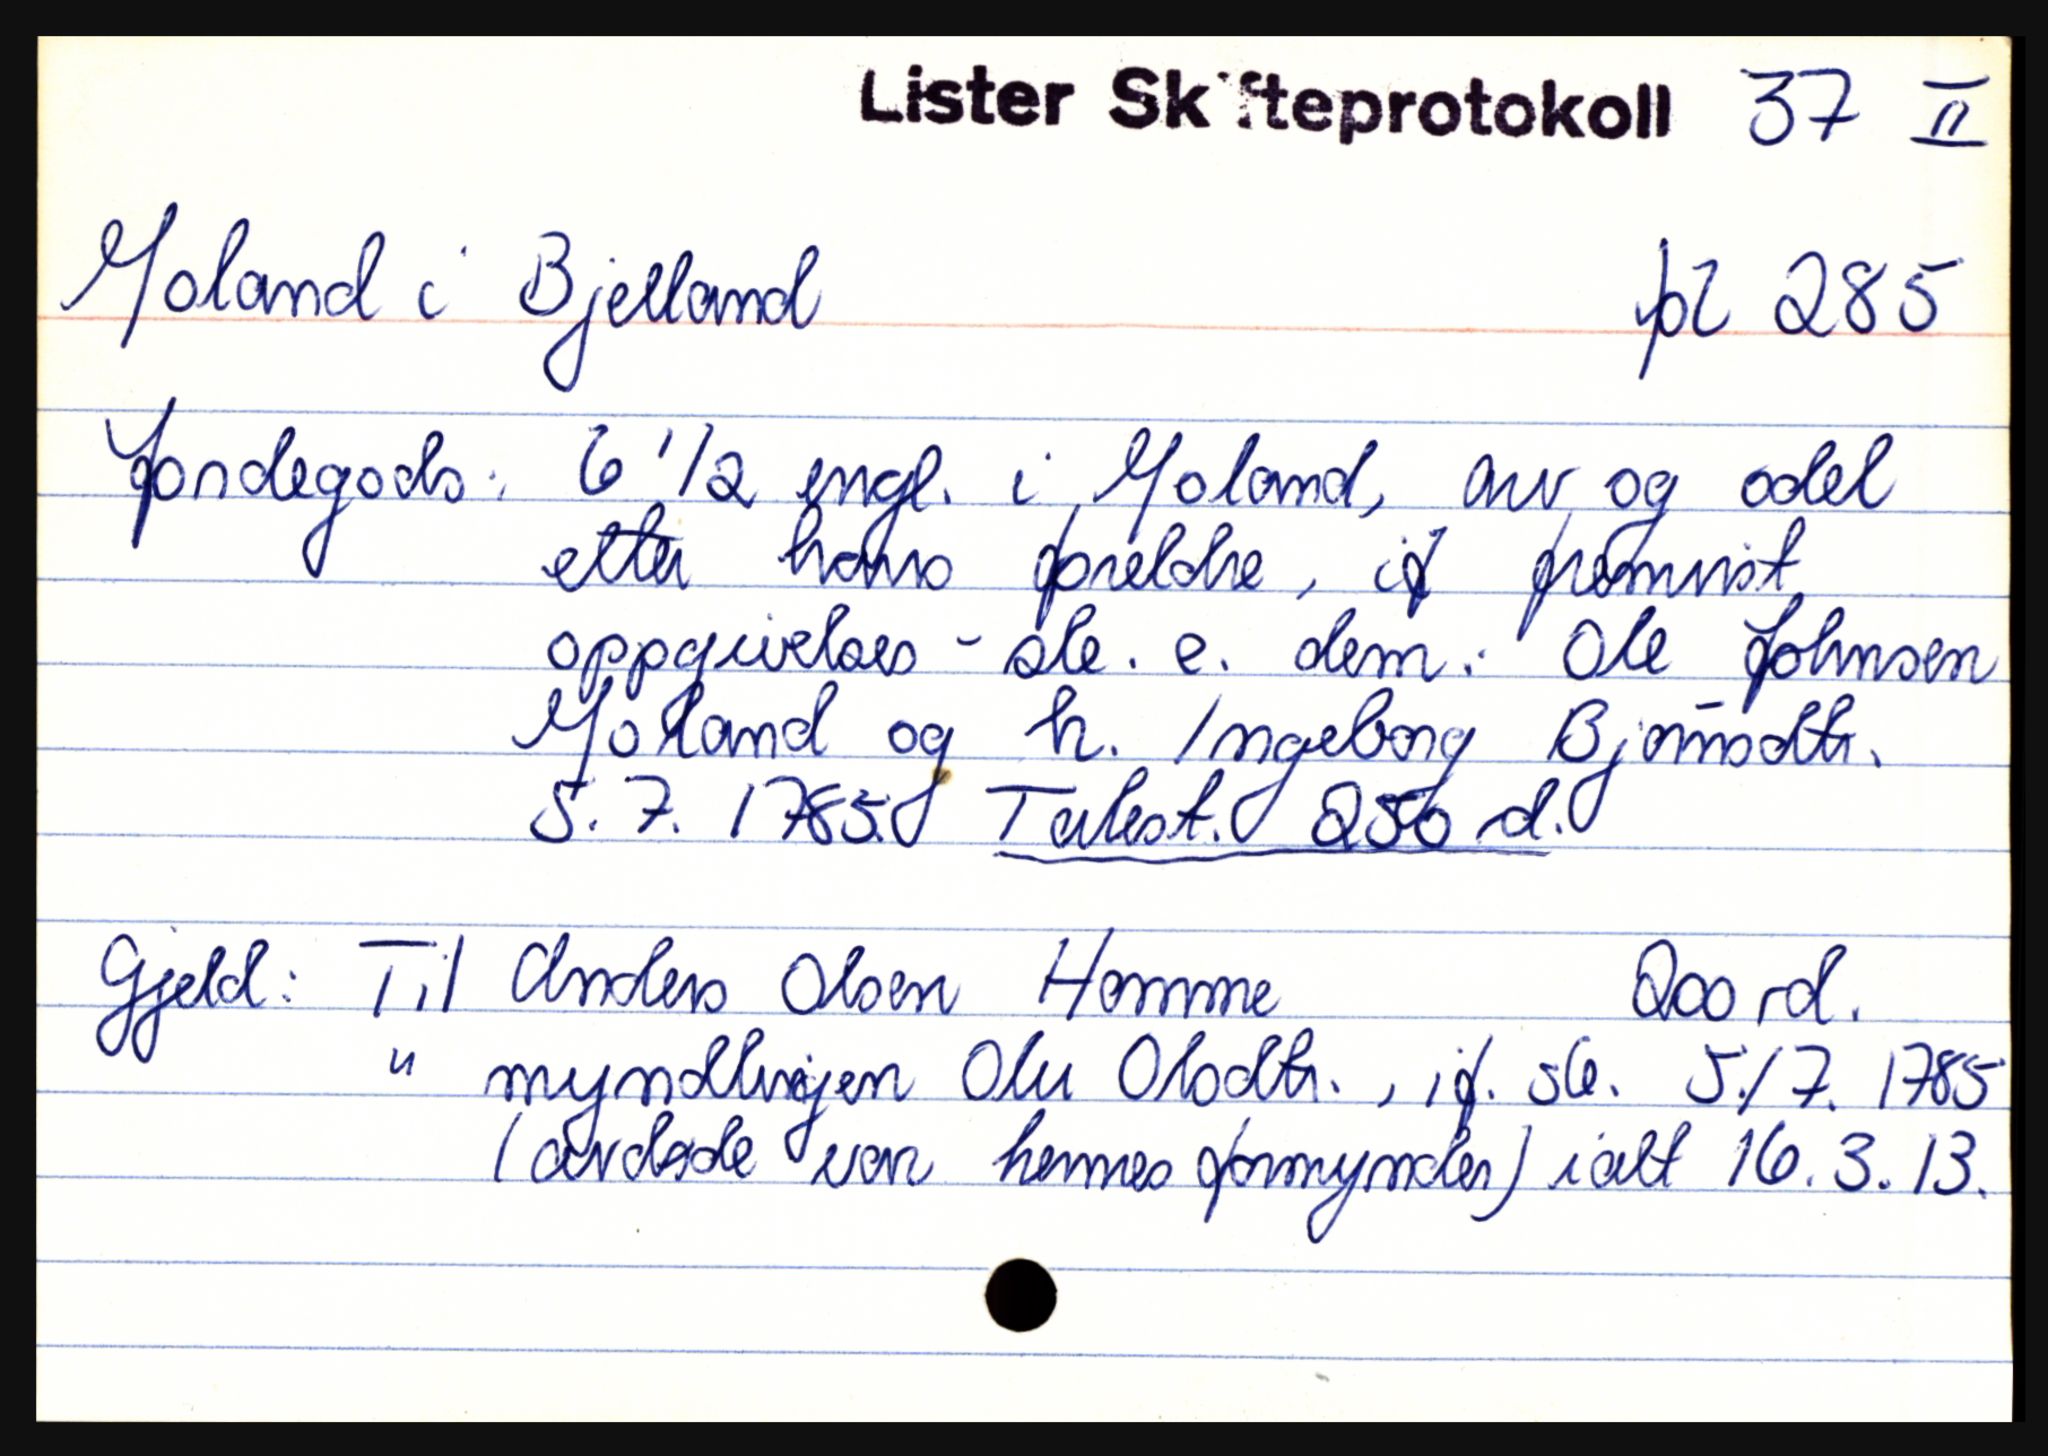 Lister Skifteprotokoll 37 II
Moland i Bjelland pl 285
Jordegods: 6 1/2 engl. i Moland, arv og odel
etter hans foreldre, if fremvist
oppgivelses - ske. e. dem: Ole Johnsen
Moland og h. Ingeborg Bjørnsdtr.
5.7.1785. Takst. 250 rd.
Gjeld: Til Anders Olsen Homme 200 rd.
" myndlingen Olu Olsdtr., if. sk. 5/7. 1785
(avdøde var hennes formynder) ialt 16.3.13.